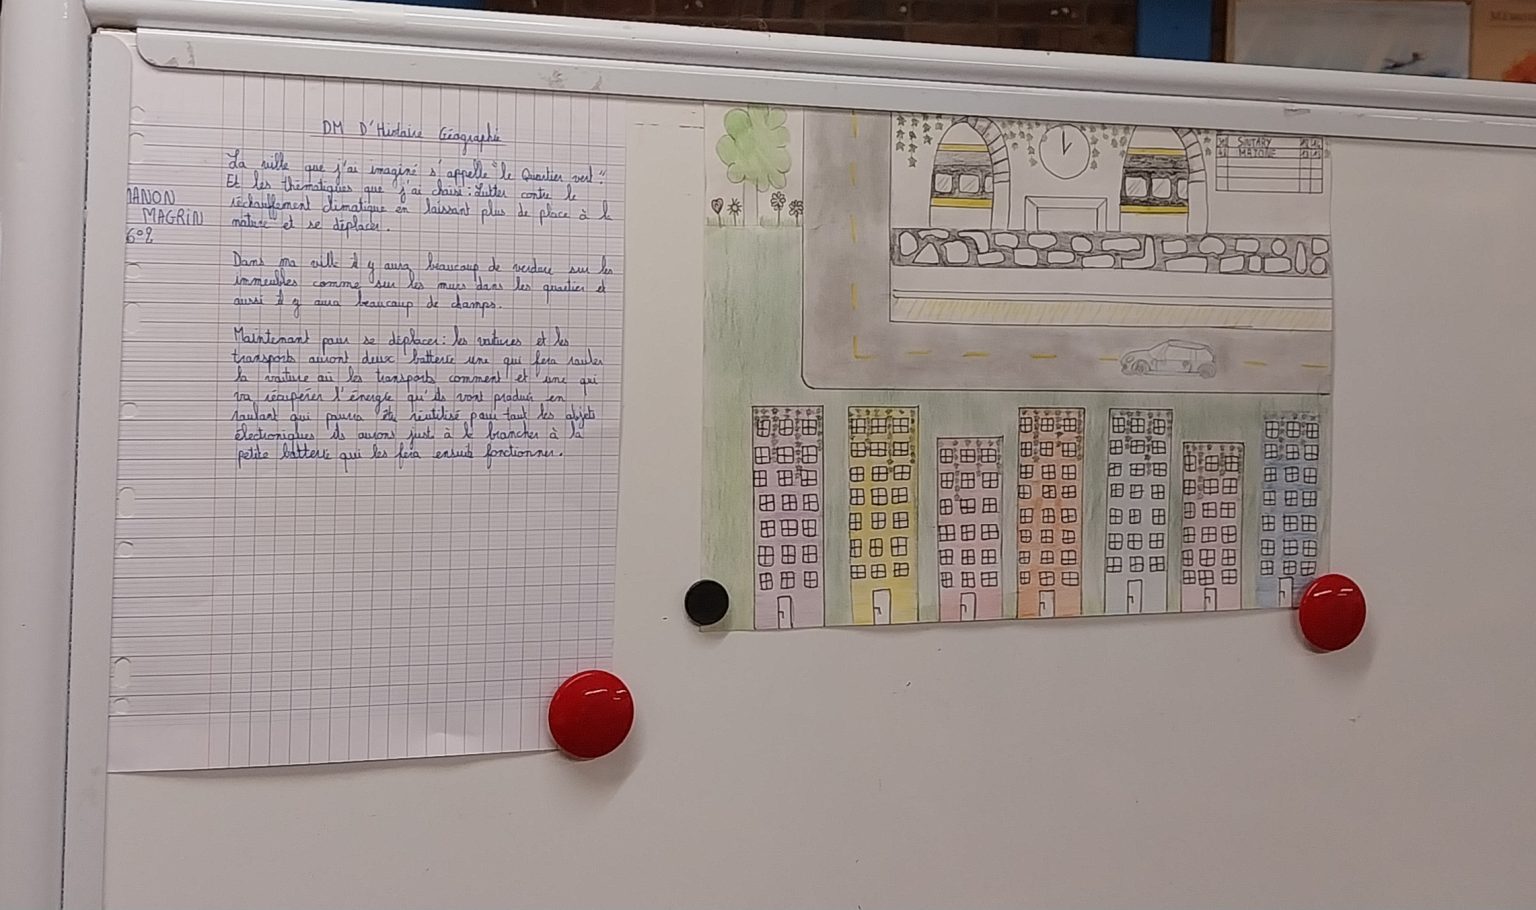 DM D'Histoire Géographie
La ville que j'ai imaginé s'appelle "le Quartier vert".
Et les thématiques que j'ai choisi : Lutter contre le
réchauffement climatique en laissant plus de place à la
nature et se déplacer.
MANON
MAGRIN
6°2
Dans ma ville il y aura beaucoup de verdure sur les
immeubles comme sur les murs dans les quartier et
aussi il y aura beaucoup de champs.
Maintenant pour se déplacer : les voitures et les
transports auront deux batterie une qui fera rouler
la voiture où les transports comment et une qui
va récupérer l'énergie qu'ils vont produir en
roulant qui pourra être réutilisé pour tout les objets
électroniques ils aurons juste à le brancher à la
petite batterie qui les fera ensuite fonctionner.